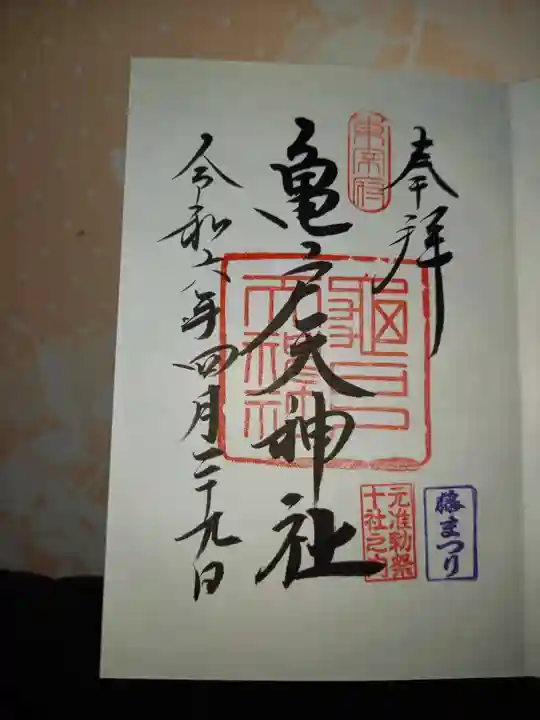 奉拝
東宰府
亀戸天神社
龜戸
天神社
元准勅祭
十社之内
藤まつり
令和六年四月二十九日